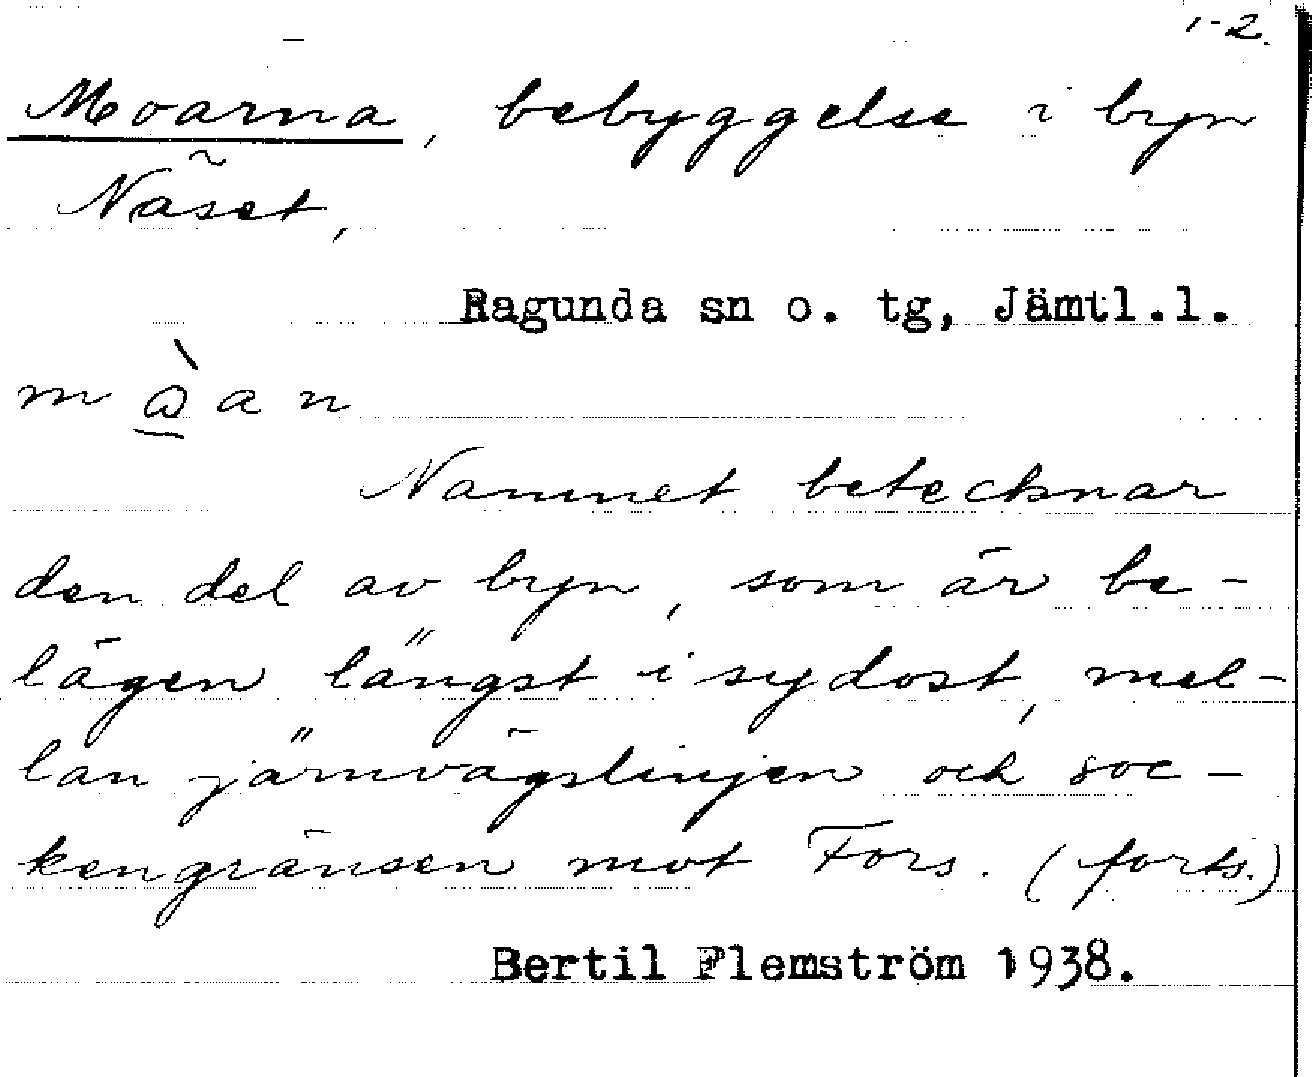 1-2.
Moarna, bebyggelse i byn
Näset,
Ragunda sn o. tg, Jämtl.l.
m a n
Namnet betecknar
den del av byn, som är be-
lägen längst i sydost, mel-
lan järnvägslinjen och soc-
kengränsen mot Fors. (forts.)
Bertil Flemström 1938.